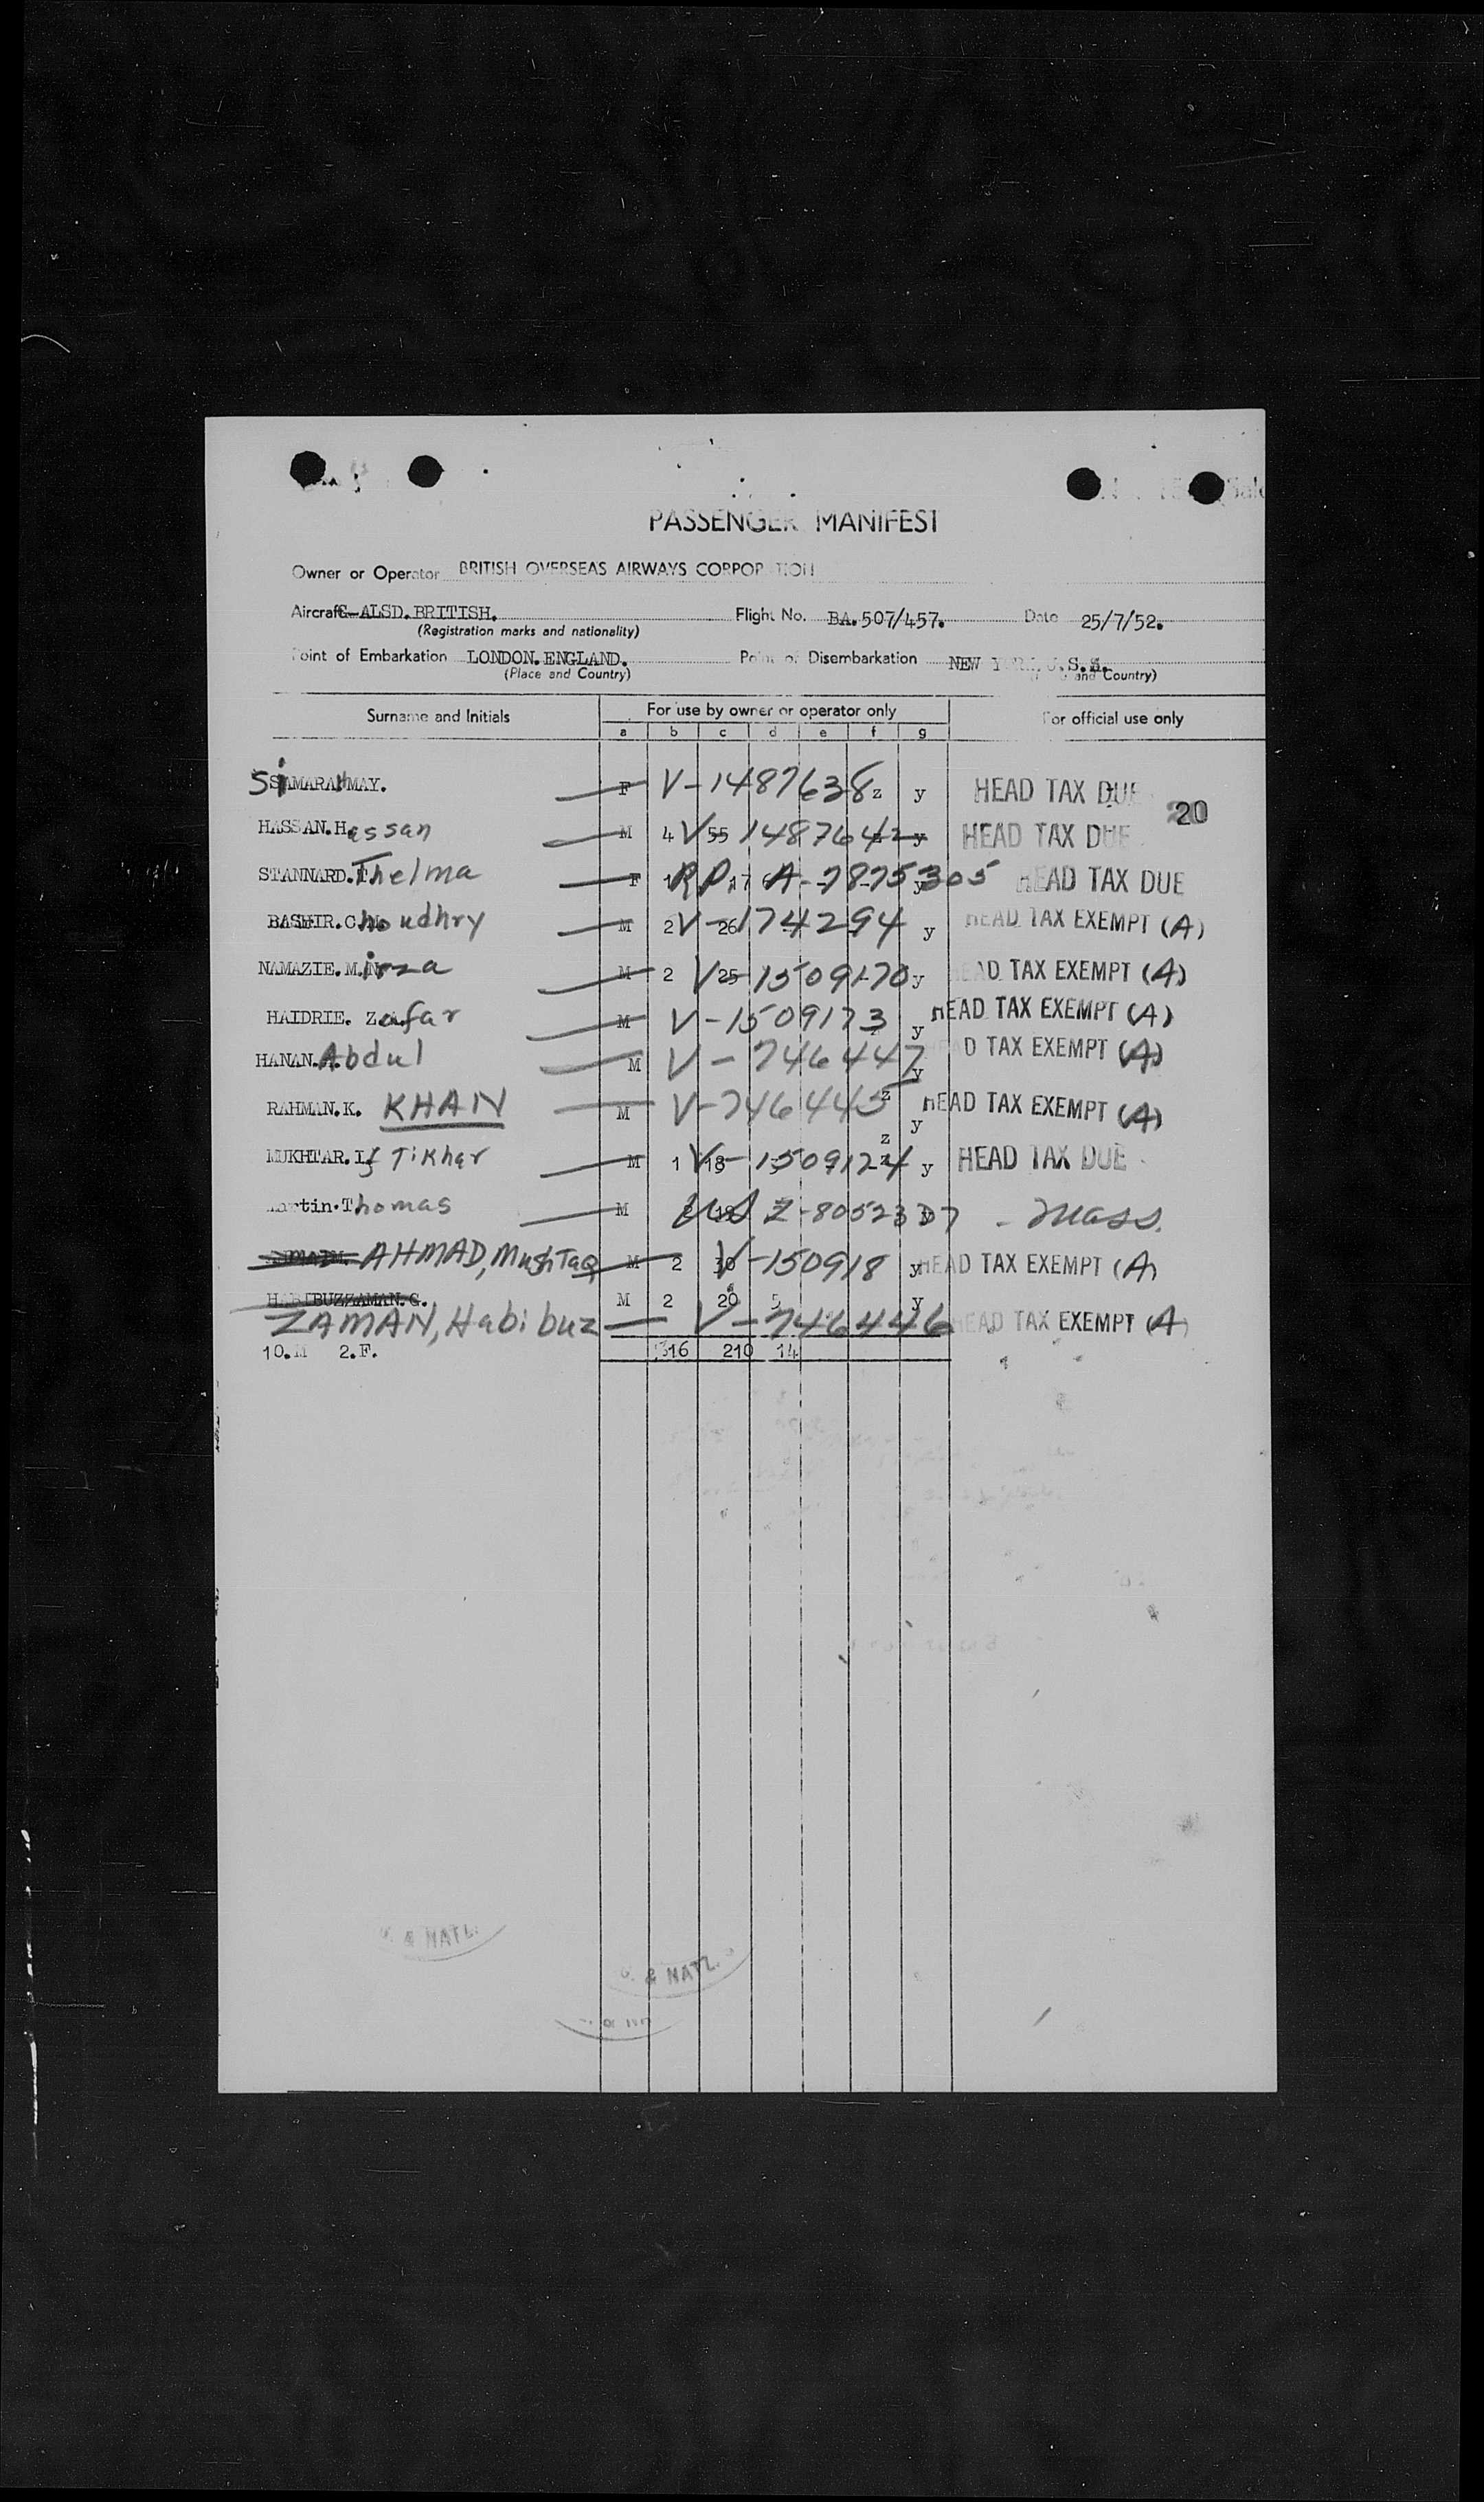 PASSENGER MANIFEST
Owner or Operator BRITISH OVERSEAS AIRWAYS CORPORATION
Aircraft G-ALSD. BRITISH. Flight No. BA.507/457. Date 25/7/52.
(Registration marks and nationality)
Point of Embarkation LONDON. ENGLAND. Point of Disembarkation NEW YORK, U.S.A.
(Place and Country) and Country)
Surname and Initials For use by owner or operator only For official use only
a b c d e f g
MAY. F V-1487638 z y HEAD TAX DUE
20
HASSAN. Hassan M 4 55 V-1487642 y HEAD TAX DUE
STANNARD. Thelma F RP. 17 A-7875305 y HEAD TAX DUE
BASHIR. Choudhry M 2 26 V-174294 y HEAD TAX EXEMPT (A)
NAMAZIE. Mirza M 2 25 V-1509170 y HEAD TAX EXEMPT (A)
HAIDRIE. Zafar M V-1509173 y HEAD TAX EXEMPT (A)
HANAN. Abdul M V-746447 y HEAD TAX EXEMPT (A)
RAHMAN. K. KHAN M V-746445 z y HEAD TAX EXEMPT (A)
z
MUKHTAR. Iftikhar M 1 18 V-1509124 z y HEAD TAX DUE
Martin. Thomas M US Z-80523 - Mass.
AHMAD, Mushtaq M 2 30 V-150918 y HEAD TAX EXEMPT (A)
HABIBUZZAMAN. G. M 2 20 5 y
ZAMAN, Habibuz V-746446 HEAD TAX EXEMPT (A)
10. M 2. F. 316 210 14
& NATL.
& NATL.